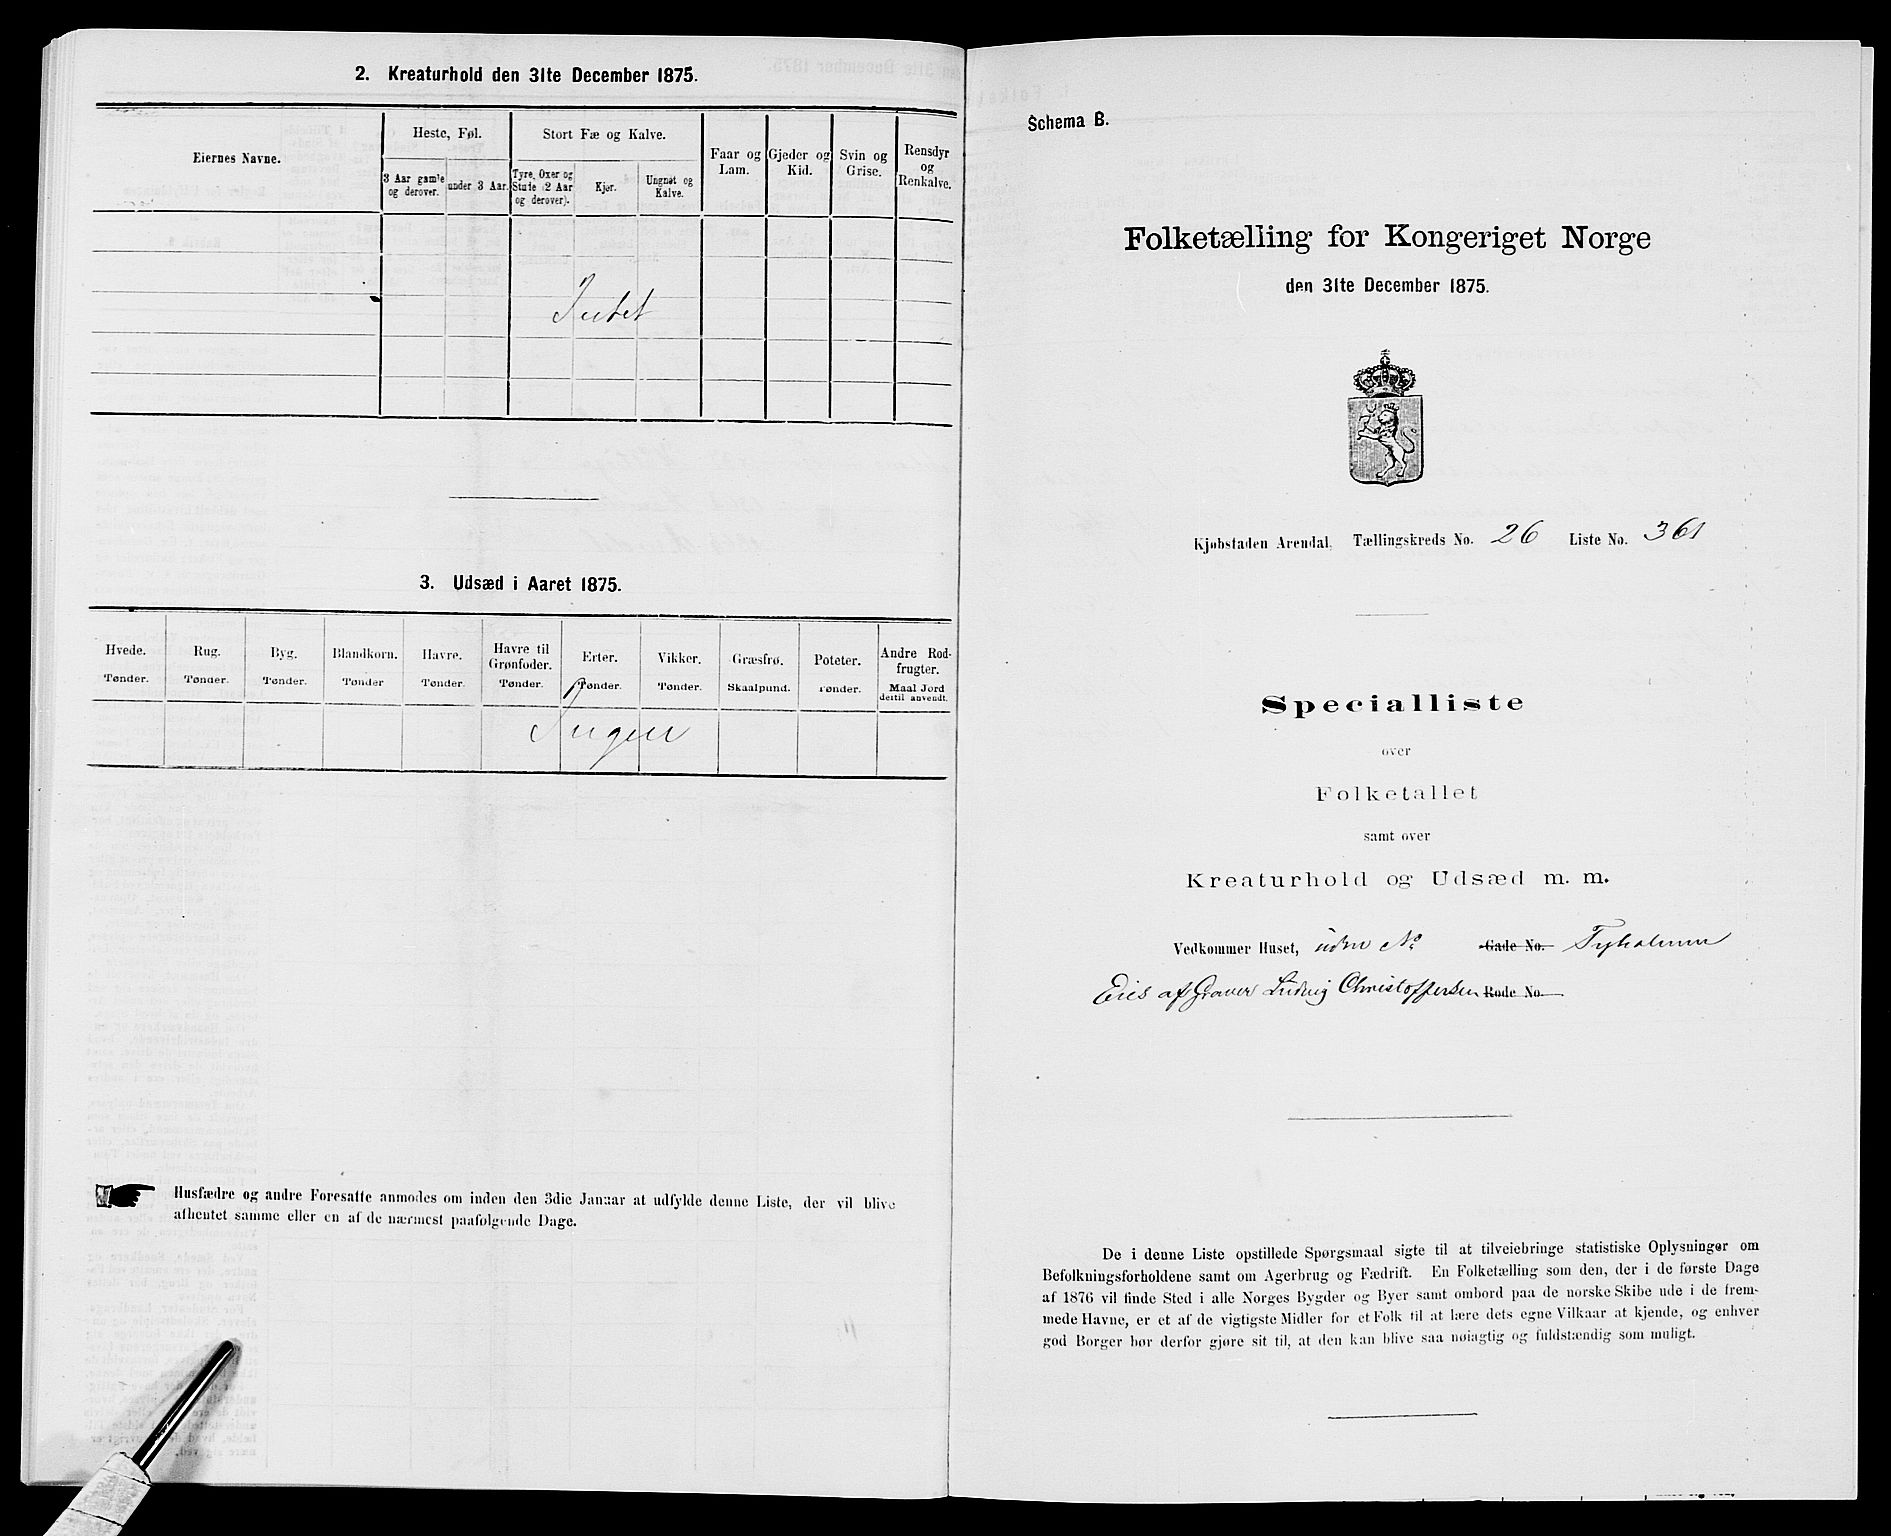 2. Kreaturhold den 31te December 1875.
Eiernes Navne.
Heste, Føl.
Stort Fæ og Kalve.
Faar og Lam.
Gjeder og Kid.
Svin og Grise.
Rensdyr og Renkalve.
3 Aar gamle og derover.
under 3 Aar.
Tyre, Oxer og Stude (2 Aar og derover).
Kjør.
Ungnøt og Kalve.
Intet
3. Udsæd i Aaret 1875.
Hvede. Rug. Byg. Blandkorn. Havre. Havre til Grønfoder. Erter. Vikker. Græsfrø. Poteter. Andre Rodfrugter.
Tønder. Tønder. Tønder. Tønder Tønder. Tønder. Tønder. Tønder. Skaalpund. Tønder. Maal Jord dertil anvendt.
Ingen
Husfædre og andre Foresatte anmodes om inden den 3die Januar at udfylde denne Liste, der vil blive
afhentet samme eller en af de nærmest paafølgende Dage.
Schema B.
Folketælling for Kongeriget Norge
den 31te December 1875.
Kjøbstaden Arendal. Tællingskreds No. 26 Liste No. 361
Specialliste
over
Folketallet
samt over
Kreaturhold og Udsæd m. m.
Vedkommer Huset, uden No Gade No. Tyholmen
Eies af Graver Ludvig Christoffersen Rode No.
De i denne Liste opstillede Spørgsmaal sigte til at tilveiebringe statistiske Oplysninger om
Befolkningsforholdene samt om Agerbrug og Fædrift. En Folketælling som den, der i de første Dage
af 1876 vil finde Sted i alle Norges Bygder og Byer samt ombord paa de norske Skibe ude i de frem-
mede Havne, er et af de vigtigste Midler for et Folk til at lære dets egne Vilkaar at kjende, og enhver
god Borger bør derfor gjøre sit til, at den kan blive saa nøiagtig og fuldstændig som muligt.